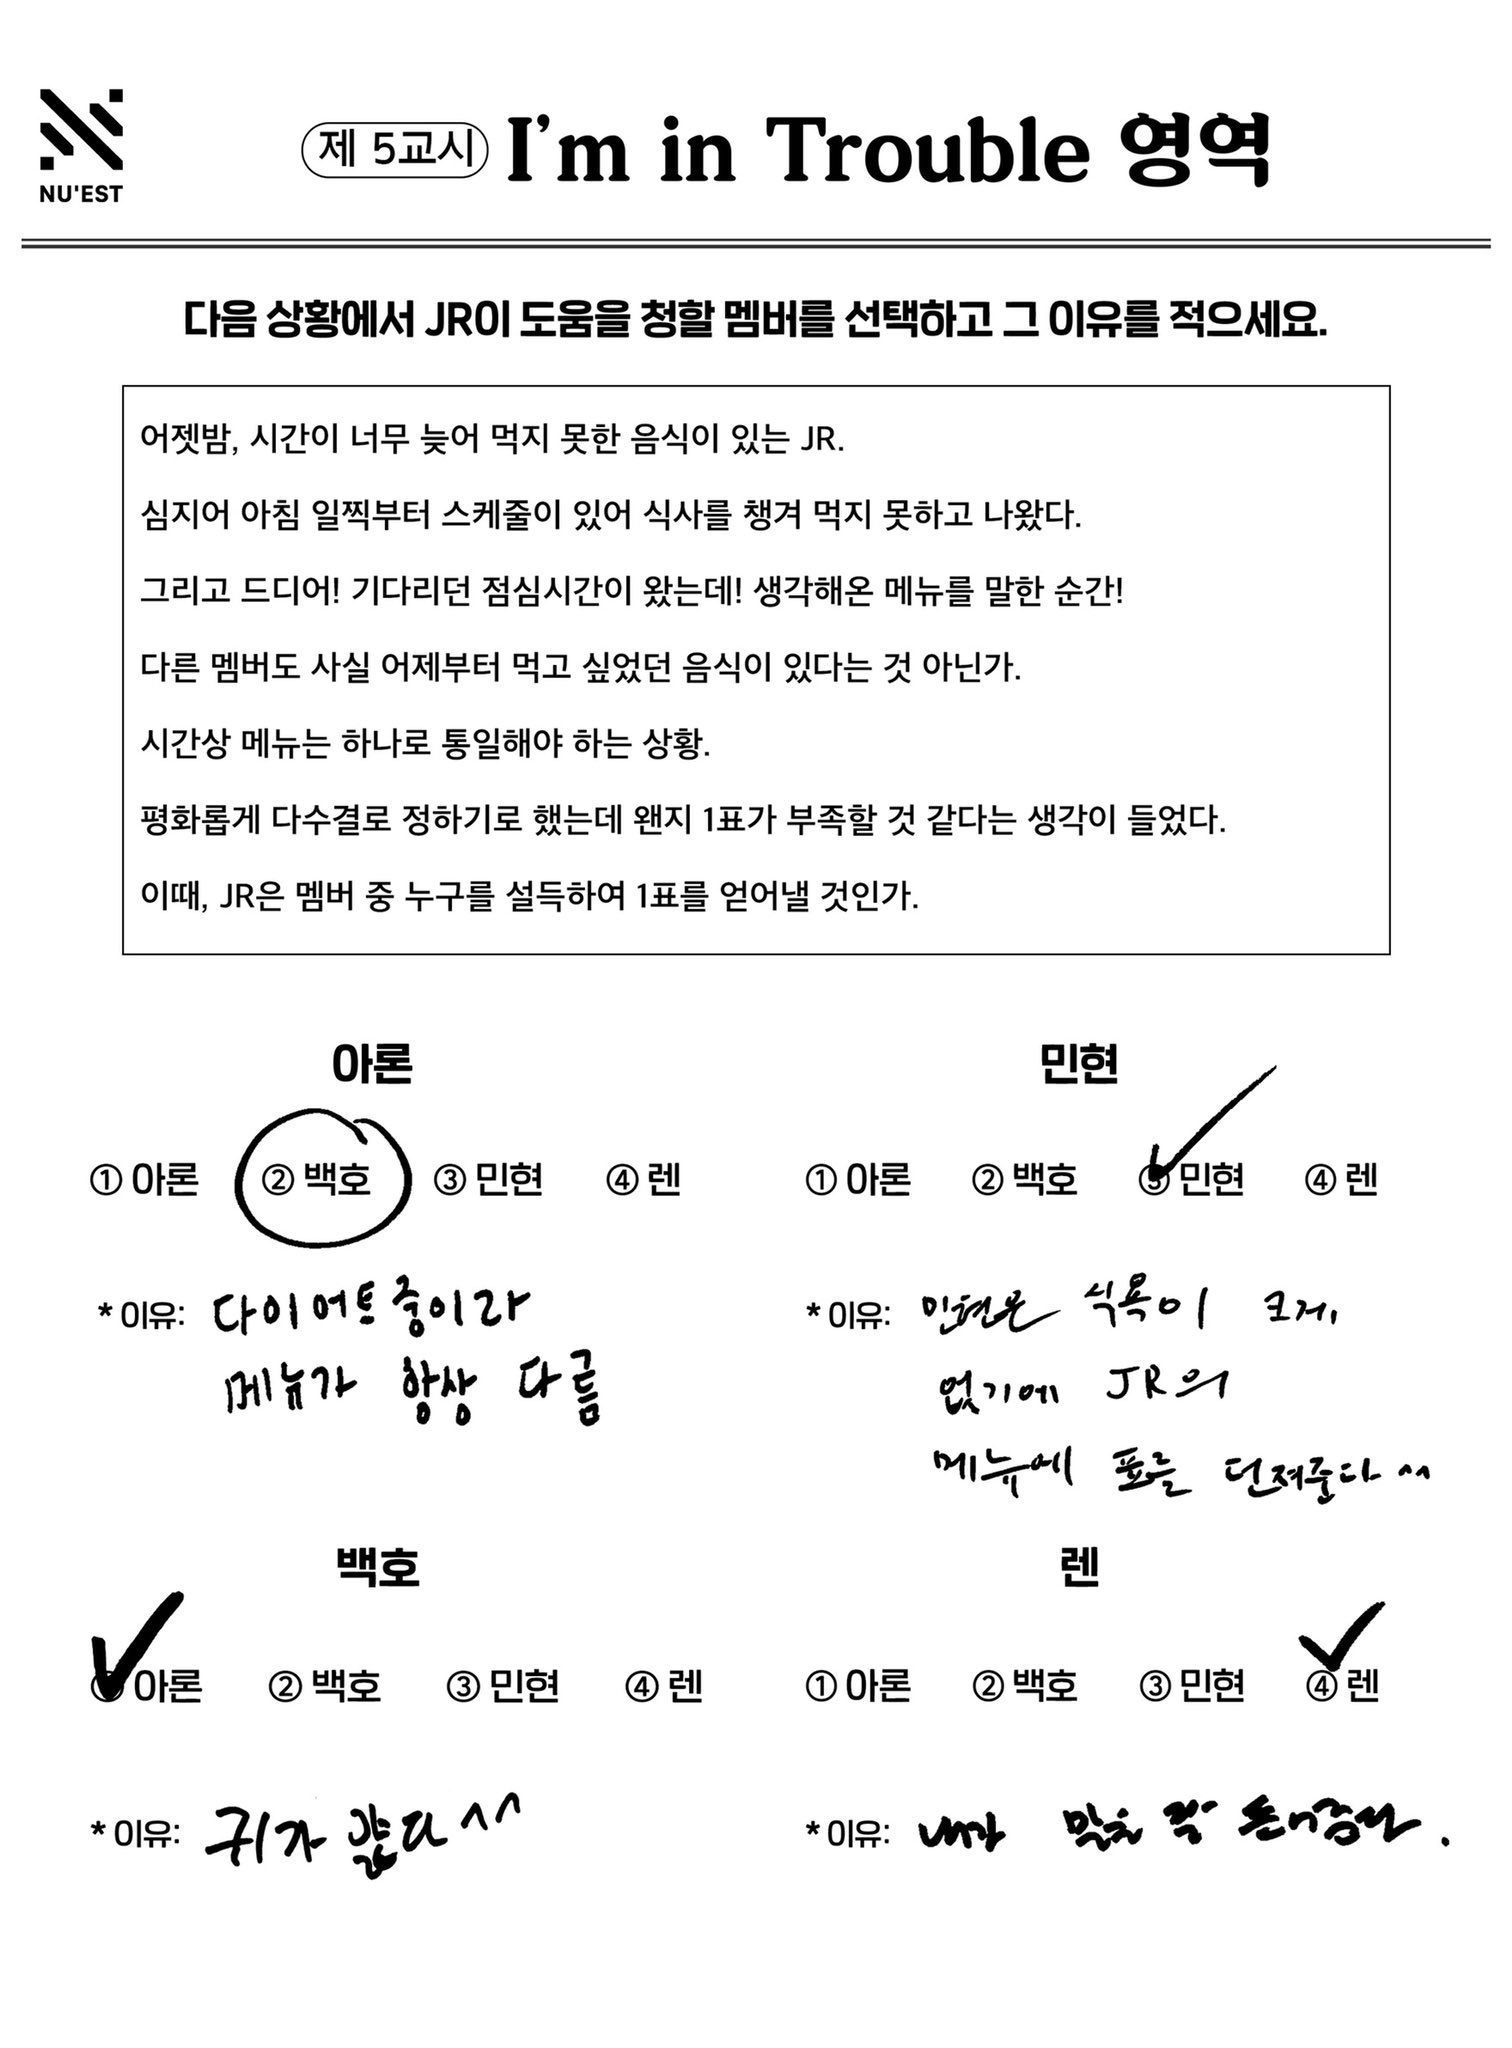 NU'EST
제 5교시 I'm in Trouble 영역
다음 상황에서 JR이 도움을 청할 멤버를 선택하고 그 이유를 적으세요.
어젯밤, 시간이 너무 늦어 먹지 못한 음식이 있는 JR.
심지어 아침 일찍부터 스케줄이 있어 식사를 챙겨 먹지 못하고 나왔다.
그리고 드디어! 기다리던 점심시간이 왔는데! 생각해온 메뉴를 말한 순간!
다른 멤버도 사실 어제부터 먹고 싶었던 음식이 있다는 것 아닌가.
시간상 메뉴는 하나로 통일해야 하는 상황.
평화롭게 다수결로 정하기로 했는데 왠지 1표가 부족할 것 같다는 생각이 들었다.
이때, JR은 멤버 중 누구를 설득하여 1표를 얻어낼 것인가.
아론
① 아론 ② 백호 ③ 민현 ④ 렌
* 이유: 다이어트중이라
메뉴가 항상 다름
민현
① 아론 ② 백호 ③ 민현 ④ 렌
* 이유: 민현은 식욕이 크게
없기에 JR의
메뉴에 표를 던져준다 ^^
백호
① 아론 ② 백호 ③ 민현 ④ 렌
* 이유: 귀가 얇다 ^^
렌
① 아론 ② 백호 ③ 민현 ④ 렌
* 이유: 내가